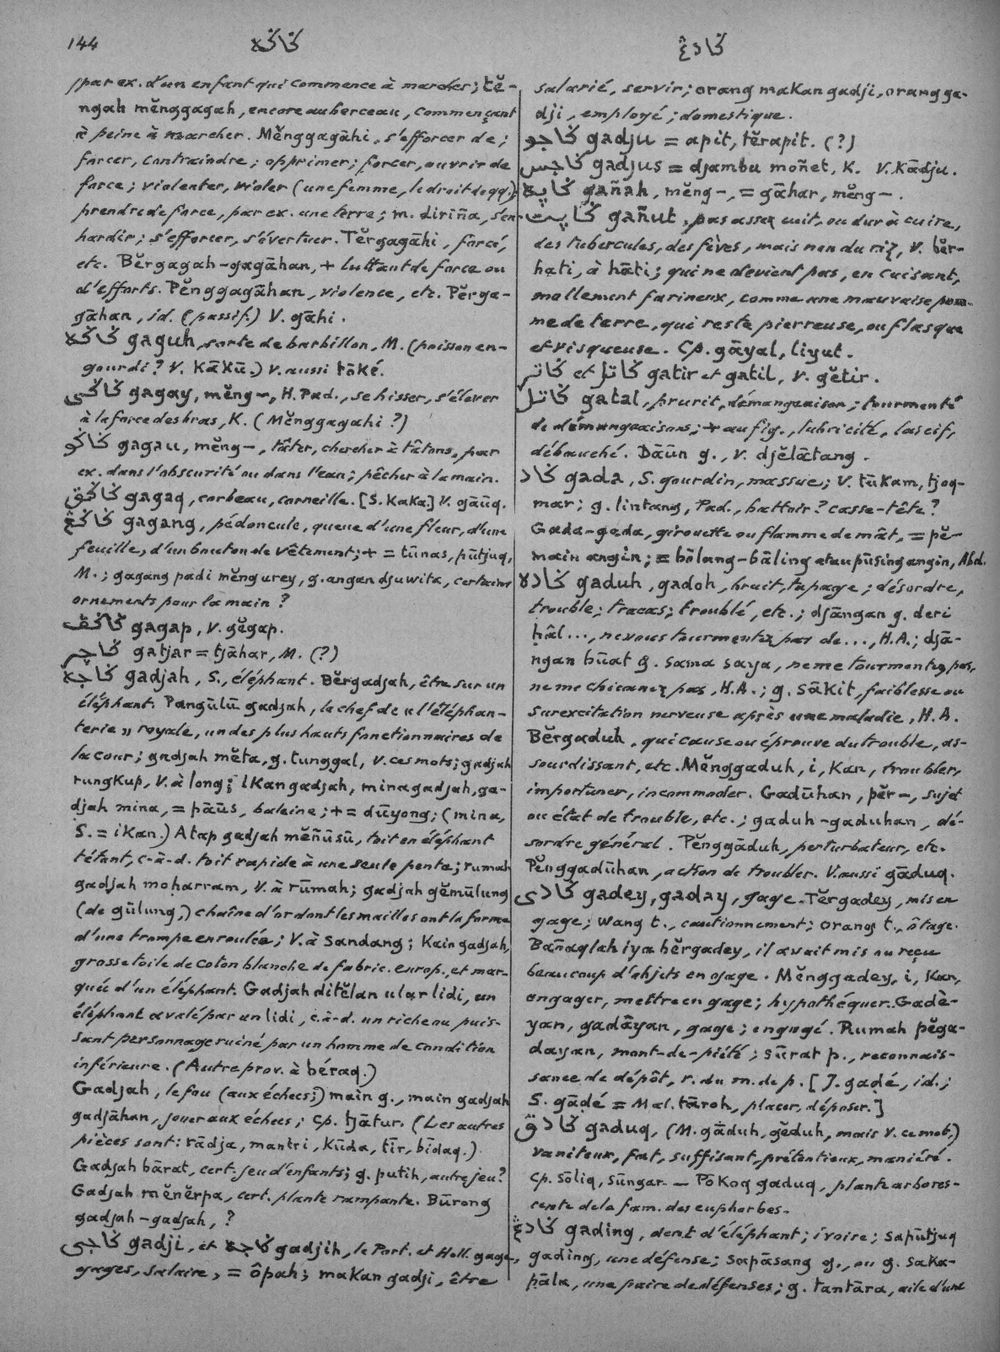 144
ڬاڬه
ڬاديڠ
(par ex. d'un enfant qui commence à marcher; tĕ-
ngah mĕnggagah, encore au berceau, commençant
à peine à marcher. Mĕnggagāhi, s'efforcer de;
forcer, contraindre; opprimer; forcer, ouvrir de
force; violenter, violer (une femme, le droit de qq);
prendre de force, par ex. une terre; m. diriña, s'en-
hardir; s'efforcer, s'évertuer. Tĕrgagāhi, forcé,
etc. Bĕrgagah-gagāhan, + luttant de force ou
d'efforts. Pĕnggagāhan, violence, etc. Pĕrga-
gāhan, id. (passif.) V. gāhi.
ڬاڬه gaguh, sorte de barbillon, M. (poisson en-
gourdi? V. kākū.) V. aussi tōké.
ڬاڬي gagay, mĕng-, H. Pad., se hisser, s'élever
à la force des bras, K. (Mĕnggagahi?)
ڬاڬو gagau, mĕng-, tâter, chercher à tâtons, par
ex. dans l'obscurité ou dans l'eau; pêcher à la main.
ڬاڬق gagaq, corbeau, corneille. [S. kaka.] V. gāūq.
ڬاڬڠ gagang, pédoncule, queue d'une fleur, d'une
feuille, d'un bouton de vêtement; + = tūnas, pūtjuq,
M.; gagang padi mĕngurey, g. angan djuwita, certains
ornements pour la main?
ڬاڬڤ gagap, V. gĕgap.
ڬاچر gatjar = tjāhar, M. (?)
ڬاجه gadjah, S., éléphant. Bĕrgadjah, être sur un
éléphant. Pangūlū gadjah, le chef de «l'éléphan-
terie» royale, un des plus hauts fonctionnaires de
la cour; gadjah mĕta, g. tunggal, V. ces mots; gadjah
rungkup, V. à long; ikan gadjah, mina gadjah, ga-
djah mina, = pāūs, baleine; + = dūyong; (mina,
S. = ikan.) Atap gadjah mĕñūsū, toit en éléphant
tétant, c.-à-d. toit rapide à une seule pente; rumah
gadjah moharram, V. à rūmah; gadjah gĕmūlung
(de gūlung,) chaîne d'or dont les mailles ont la forme
d'une trompe enroulée; V. à sandang; Kain gadjah,
grosse toile de coton blanche de fabric. europ., et mar-
quée d'un éléphant. Gadjah ditĕlan ular lidi, un
éléphant avalé par un lidi, c.-à-d. un riche ou puis-
sant personnage ruiné par un homme de condition
inférieure. (Autre prov. à béraq.)
Gadjah, le fou (aux échecs;) main g., main gadjah
gadjāhan, jouer aux échecs; cp. tjātur. (Les autres
pièces sont: rādja, mantri, kūda, tīr, bīdaq.).
Gadjah bārat, cert. jeu d'enfants; g. putih, autre jeu?
Gadjah mĕnĕrpa, cert. plante rampante. Būrong
gadjah-gadjah, ?
ڬاجي gadji, et ڬاجه gadjih, le Port. et Holl. gage,
gages, salaire, = ôpah; makan gadji, être
salarié, servir; orang makan gadji, orang ga-
dji, employé; domestique.
ڬاجو gadju = apit, tĕrapit. (?)
ڬاجس gadjus = djambu moñet, K. V. kādju.
ڬاڽه gañah, mĕng-, = gāhar, mĕng-.
ڬاڽت gañut, pas assez cuit, ou dur à cuire,
des tubercules, des fèves, mais non du riz, V. bĕr-
hati, à hāti; qui ne devient pas, en cuisant,
mollement farineux, comme une mauvaise pom-
me de terre, qui reste pierreuse, ou flasque
et visqueuse. Cp. gāyal, liyut.
ڬاتر et ڬاتل gatir et gatil, V. gĕtir.
ڬاتل gatal, prurit, démangeaison; tourmenté
de démangeaisons; + au fig., lubricité, lascif,
débauché. Dāūn g., V. djĕlātang.
ڬاد gada, S. gourdin, massue; V. tūkam, tjoq-
mar; g. lintang, Pad., battoir? casse-tête?
Gada-gada, girouette ou flamme de mât, = pĕ-
main angin; = bōlang-bāling atau pūsing angin, Abd.
ڬاده gaduh, gadoh, bruit, tapage; désordre,
trouble; tracas; troublé, etc.; djāngan g. deri
hāl..., ne vous tourmentez pas de..., H.A.; djā-
ngan būat g. sama saya, ne me tourmentez pas,
ne me chicanez pas, H.A.; g. sākit, faiblesse ou
surexcitation nerveuse après une maladie, H.A.
Bĕrgaduh, qui cause ou éprouve du trouble, as-
sourdissant, etc. Mĕnggaduh, i, kan, troubler,
importuner, incommoder. Gadūhan, pĕr-, sujet
ou état de trouble, etc.; gaduh-gaduhan, dé-
sordre général. Pĕnggāduh, perturbateur, etc.
Pĕnggadūhan, action de troubler. V. aussi gāduq.
ڬادي gadey, gaday, gage. Tĕrgadey, mis en
gage; wang t., cautionnement; orang t., ôtage.
Bañaqlah iya bĕrgadey, il avait mis ou reçu
beaucoup d'objets en gage. Mĕnggadey, i, kan,
engager, mettre en gage; hypothéquer. Gadè-
yan, gadāyan, gage; engagé. Rumah pĕga-
dayan, mont-de-piété; sūrat p., reconnais-
sance de dépôt, r. du m. de p. [J. gadé, id.;
S. gādé = Mal. tāroh, placer, déposer.]
ڬادق gaduq, (M. gāduh, gĕduh, mais V. ce mot,)
vaniteux, fat, suffisant, prétentieux, maniéré.
Cp. sōliq, sūngar. — Pokoq gaduq, plante arbores-
cente de la fam. des euphorbes.
ڬاديڠ gading, dent d'éléphant; ivoire; sapūtjuq
gading, une défense; sapāsang g., ou g. saka-
pāla, une paire de défenses; g. tantāra, aile d'une